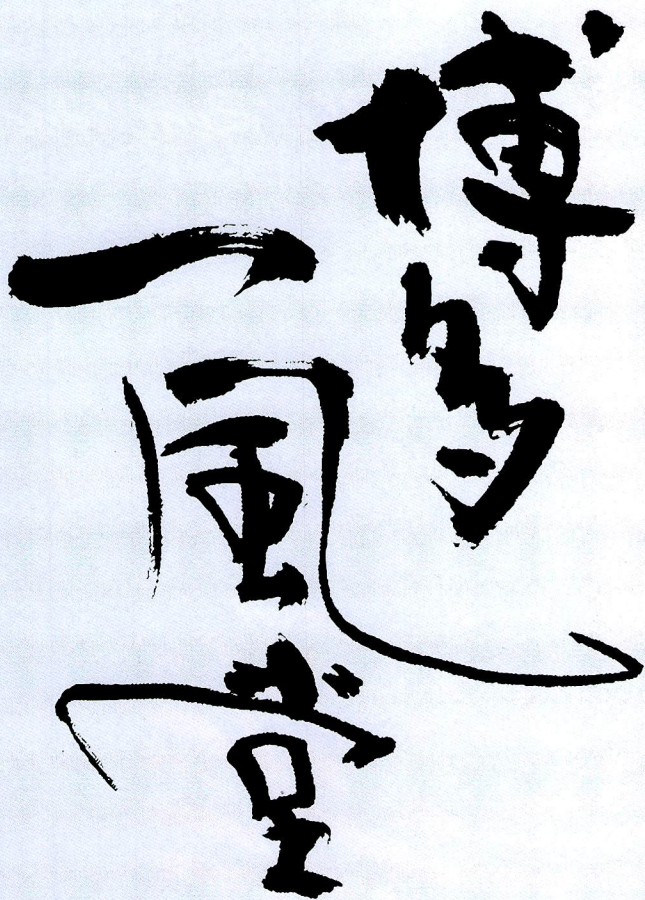 博多
一風堂